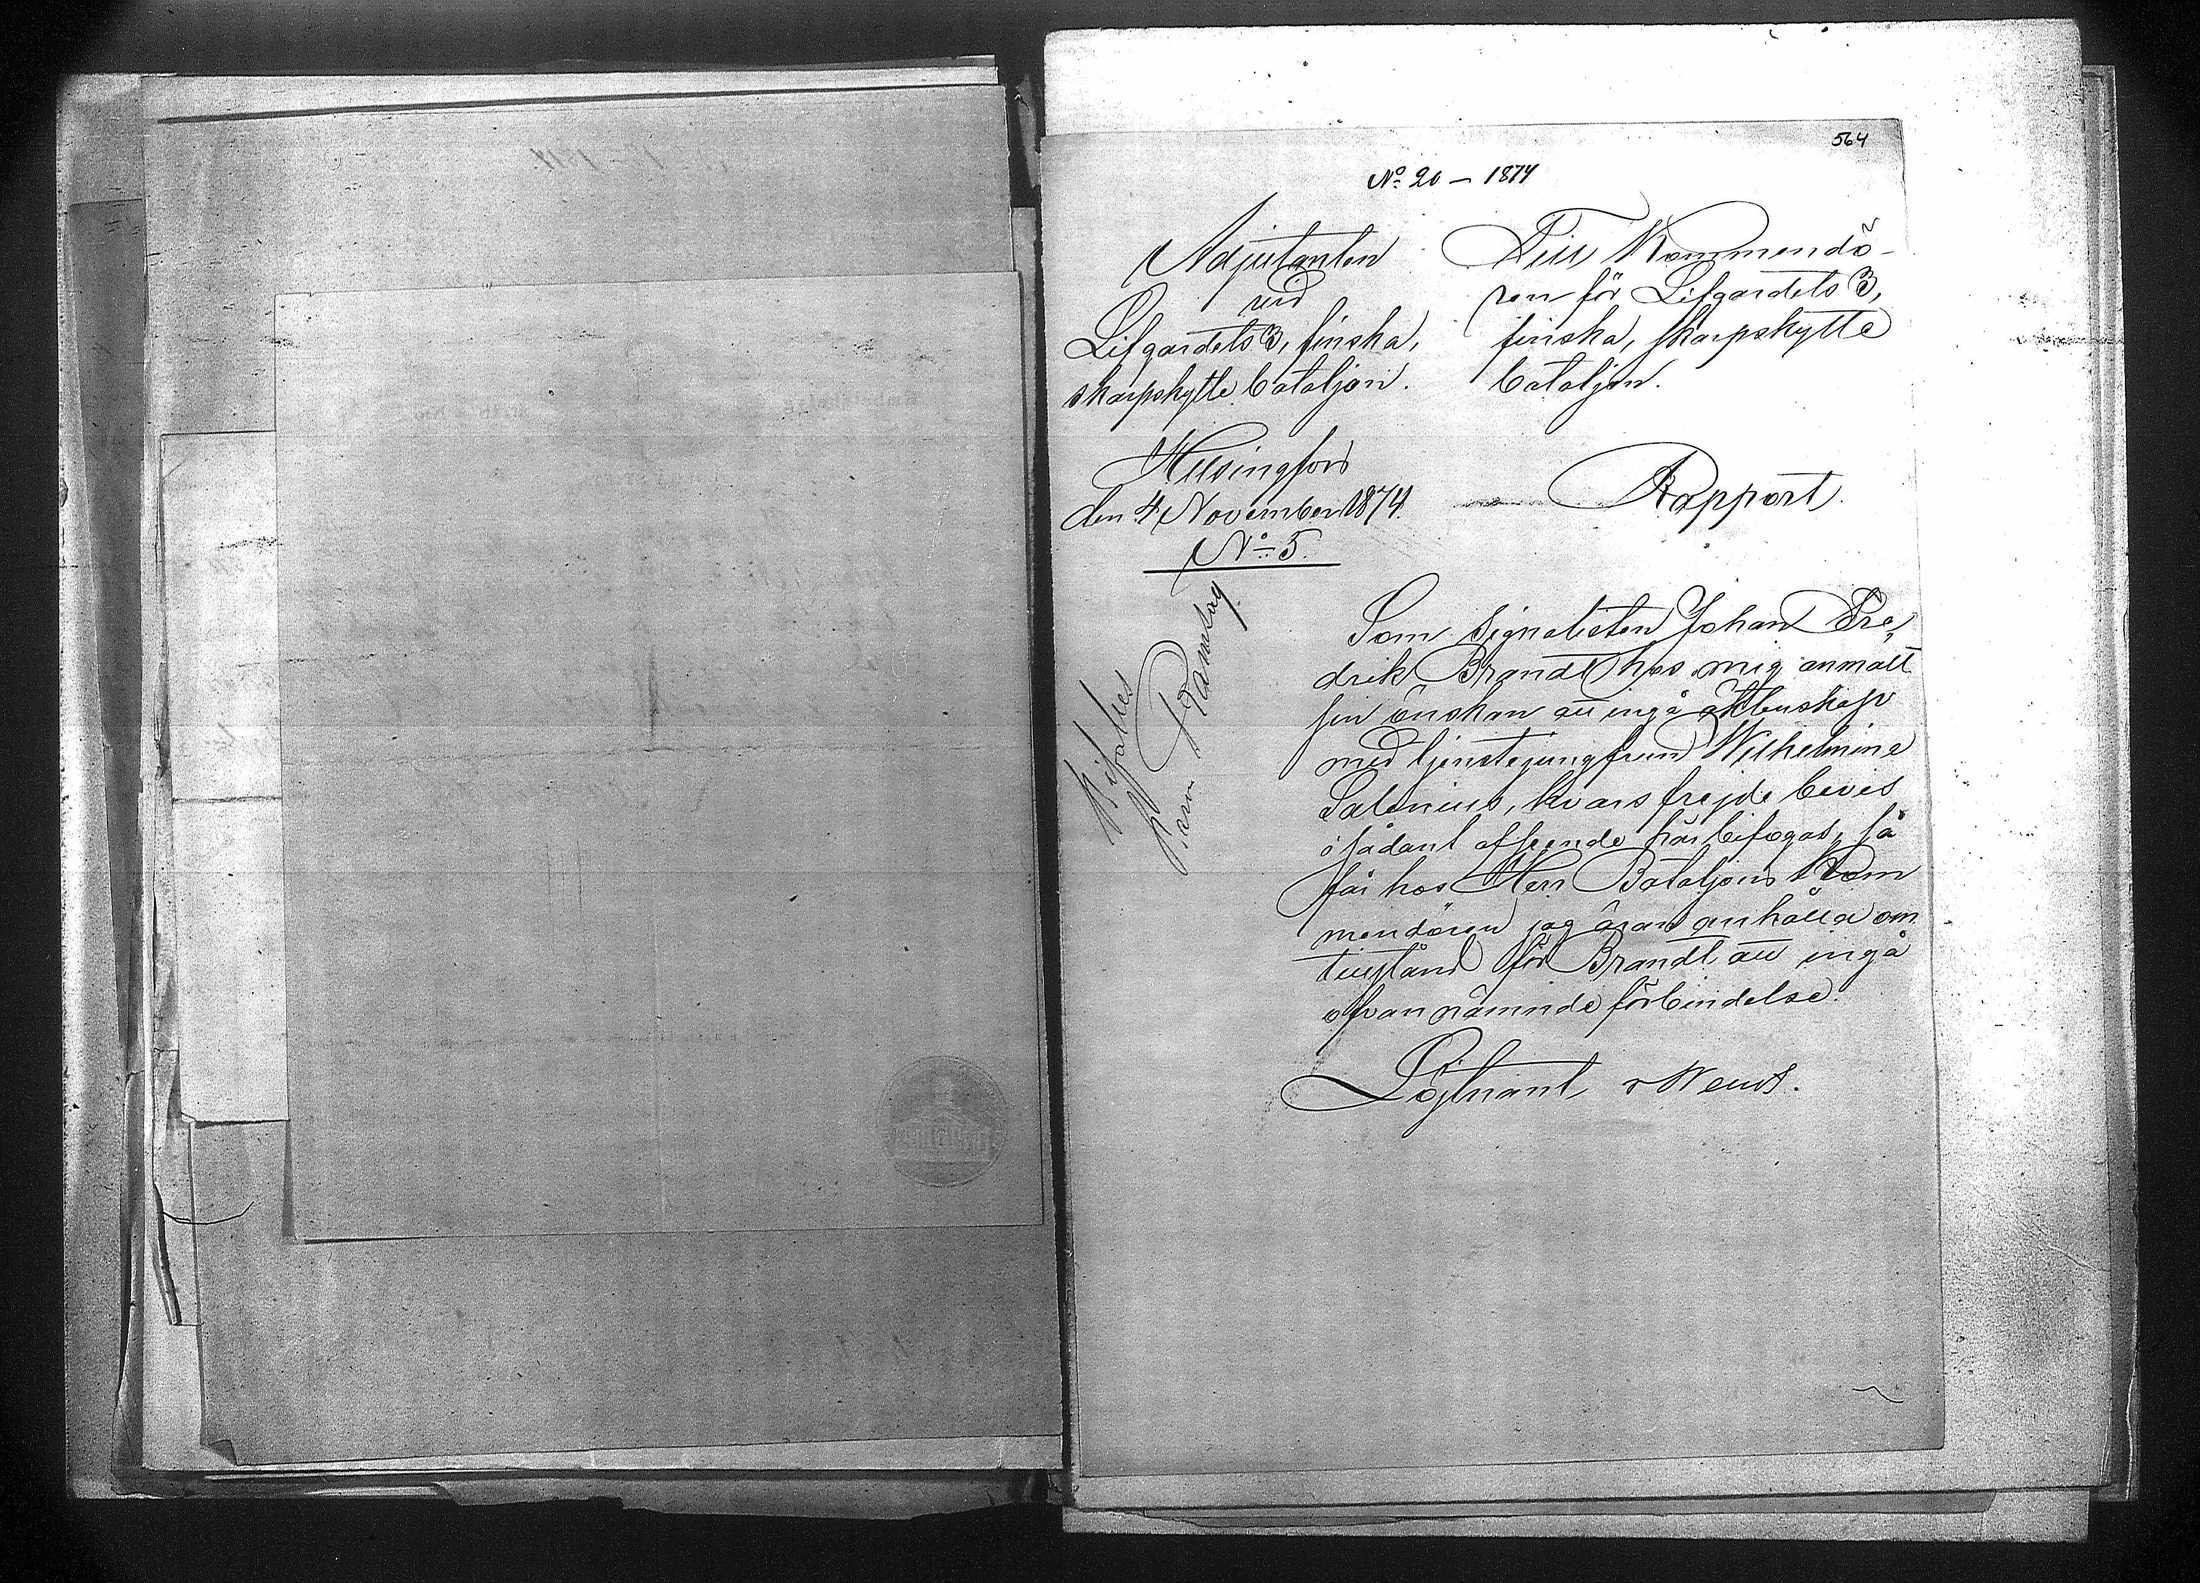 564
No 20 – 1874
Adjutanten
vid
Lifgardets 3, finska,
skarpskytte bataljon.
Helsingfors
den 4 November 1874.
No 5.
Till Kommendö-
ren för Lifgardets 3,
finska, skarpskytte
bataljon.
Rapport.
Bifalles
Ramsay
Som signalisten Johan Fre-
drik Brandt hos mig anmält
sin önskan att ingå äktenskap
med tjenstejungfrun Wilhelmina
Salenius, hvars frejdebevis
i sådant afseende här bifogas, så
får hos Herr Bataljons Kom
mendören jag äran anhålla om
tillstånd för Brandt att ingå
ofvannämnde förbindelse.
Löjtnant